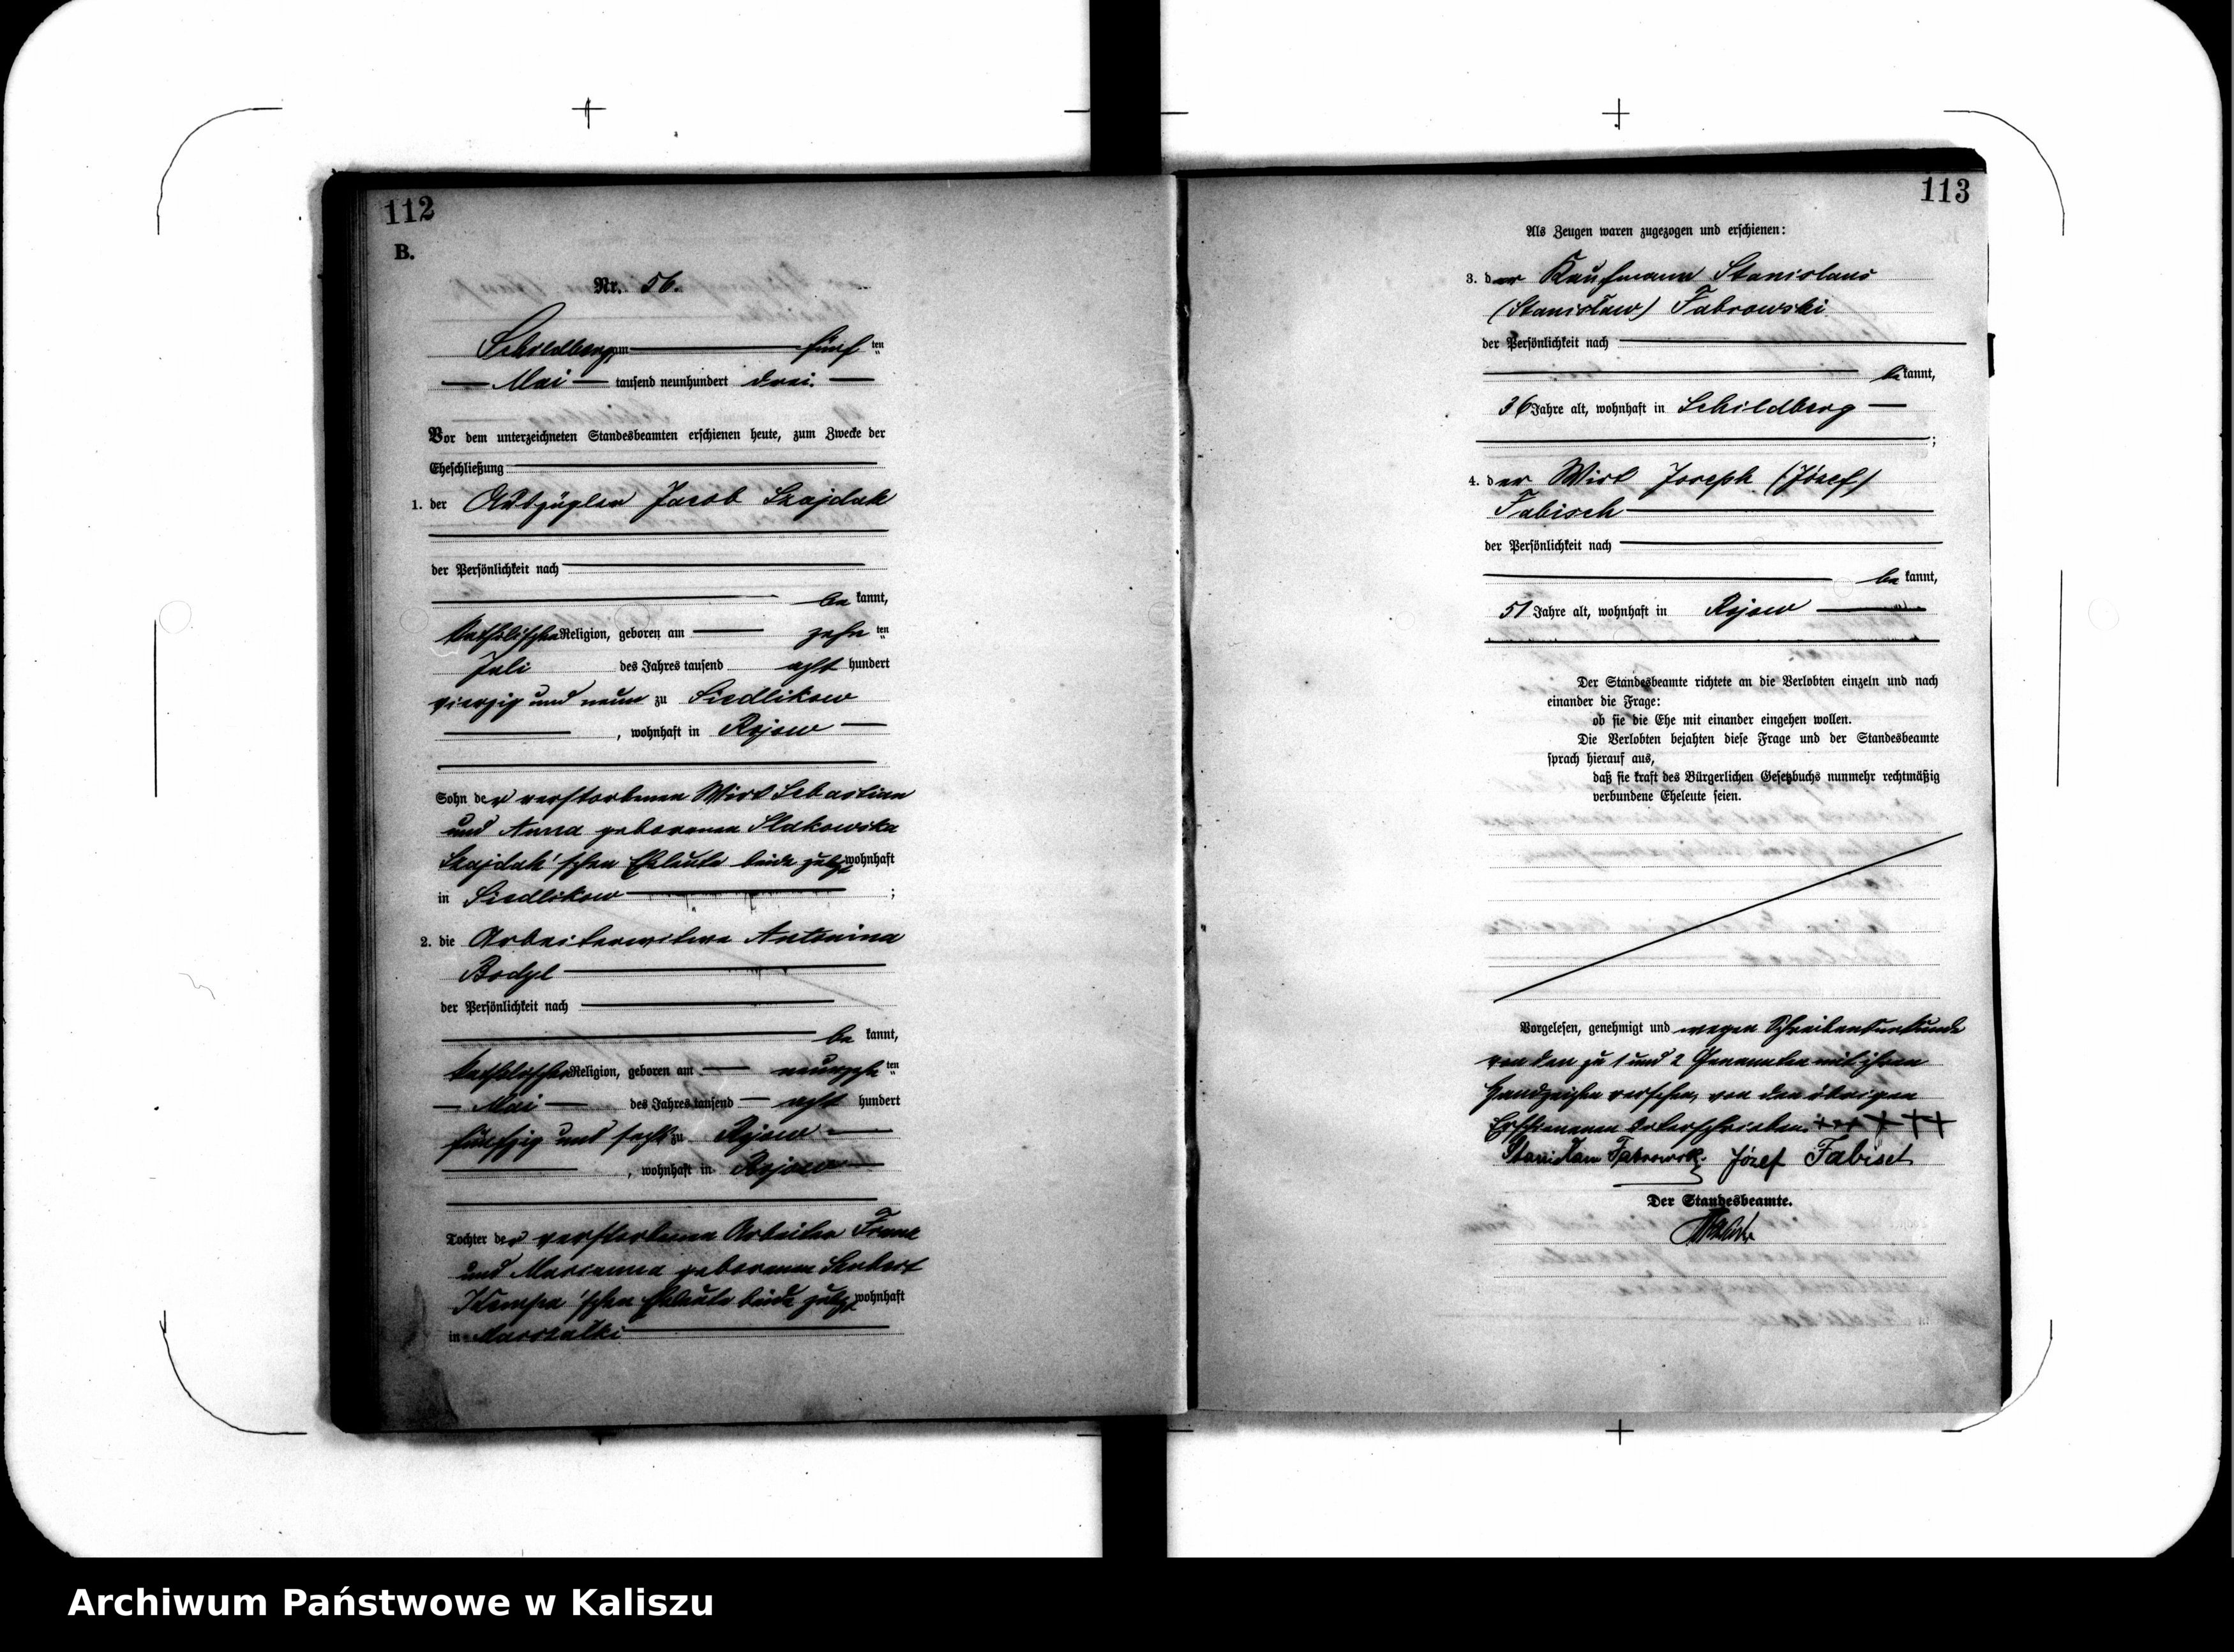 112
B.
Nr. 56.
Schildberg, am fünf ten
Mai tausend neunhundert drei.
Vor dem unterzeichneten Standesbeamten erschienen heute, zum Zwecke der
Eheschließung
1. der Auszügler Jacob Szajdak
der Persönlichkeit nach
be kannt,
katholischer Religion, geboren am zehn ten
Juli des Jahres tausend acht hundert
vierzig und neun zu Siedlikow
, wohnhaft in Rojow
Sohn der verstorbenen Wirt Sebastian
und Anna geborenen
Szajdak'schen Eheleute beide zuletzt wohnhaft
in Siedlikow ;
2. die Arbeiterwitwe Antonina
der Persönlichkeit nach
be kannt,
katholischer Religion, geboren am neunzehn ten
Mai des Jahres tausend acht hundert
fünfzig und sechs zu Rojow
, wohnhaft in Rojow
Tochter der verstorbenen Arbeiter Franz
und Marianna geborenen
Kempa'schen Eheleute beide zuletzt wohnhaft
in Marszalki
113
Als Zeugen waren zugezogen und erschienen:
3. der Kaufmann Stanislaus
(Stanisław) Fabrowski
der Persönlichkeit nach
be kannt,
36 Jahre alt, wohnhaft in Schildberg
;
4. der Wirt Joseph (Józef)
Fabisch
der Persönlichkeit nach
be kannt,
51 Jahre alt, wohnhaft in Rojow
Der Standesbeamte richtete an die Verlobten einzeln und nach
einander die Frage:
ob sie die Ehe mit einander eingehen wollen.
Die Verlobten bejahten diese Frage und der Standesbeamte
sprach hierauf aus,
daß sie kraft des Bürgerlichen Gesetzbuchs nunmehr rechtmäßig
verbundene Eheleute seien.
Vorgelesen, genehmigt und wegen Schreibensunkunde
von den zu 1 und 2 Genannten mit ihren
Handzeichen versehen, von den übrigen
Erschienenen unterschrieben. +++ +++
Stanisław Fabrowski Józef Fabisch
Der Standesbeamte.
Archiwum Państwowe w Kaliszu